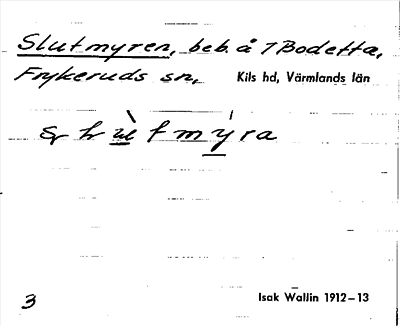 Slutmyren, beb. å 7 Bodetta,
Frykeruds sn,
Kils hd, Värmlands län
3
Isak Wallin 1912–13